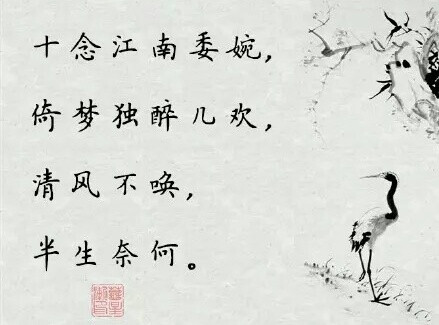 十念江南委婉，
倚梦独醉几欢，
清风不唤，
半生奈何。